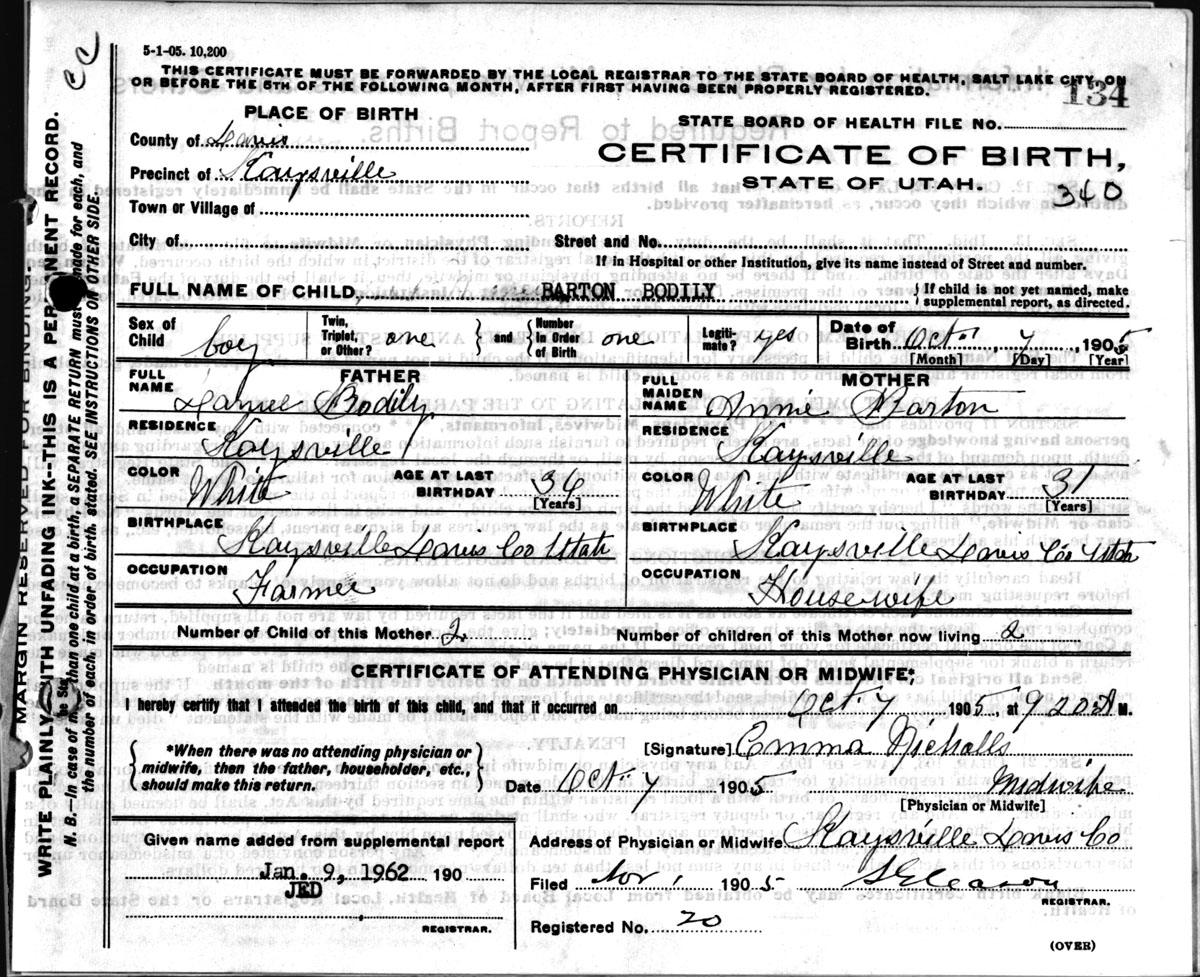 5-1-05. 10,200
THIS CERTIFICATE MUST BE FORWARDED BY THE LOCAL REGISTRAR TO THE STATE BOARD OF HEALTH, SALT LAKE CITY, ON
OR BEFORE THE 5TH OF THE FOLLOWING MONTH, AFTER FIRST HAVING BEEN PROPERLY REGISTERED.
134
PLACE OF BIRTH
STATE BOARD OF HEALTH FILE No.
County of Davis
CERTIFICATE OF BIRTH,
Precinct of Kaysville
STATE OF UTAH.
340
Town or Village of
City of
Street and No.
If in Hospital or other Institution, give its name instead of Street and number.
FULL NAME OF CHILD, BARTON BODILY
{ If child is not yet named, make
supplemental report, as directed.
Sex of Child boy
Twin, Triplet, or Other? one } and { Number in Order of Birth one
Legiti-mate? yes
Date of Birth Oct. 7, 1905
[Month] [Day] [Year]
FATHER
FULL NAME Bodily
RESIDENCE Kaysville
COLOR White
AGE AT LAST BIRTHDAY 36
[Years]
BIRTHPLACE Kaysville Davis Co Utah
OCCUPATION Farmer
MOTHER
FULL MAIDEN NAME Annie Barton
RESIDENCE Kaysville
COLOR White
AGE AT LAST BIRTHDAY 31
[Years]
BIRTHPLACE Kaysville Davis Co Utah
OCCUPATION Housewife
Number of Child of this Mother 2 Number of children of this Mother now living 2
CERTIFICATE OF ATTENDING PHYSICIAN OR MIDWIFE*
I hereby certify that I attended the birth of this child, and that it occurred on Oct. 7 1905, at 9 20 A M.
{ *When there was no attending physician or
midwife, then the father, householder, etc.,
should make this return. }
[Signature] Emma Nicholls
Date Oct 7 1905 Midwife
[Physician or Midwife]
Given name added from supplemental report
Jan. 9, 1962 190
JED
REGISTRAR.
Address of Physician or Midwife Kaysville Davis Co
Filed Nov 1 1905 S Gleason
REGISTRAR.
Registered No. 20
(OVER)
MARGIN RESERVED FOR BINDING.
WRITE PLAINLY WITH UNFADING INK--THIS IS A PERMANENT RECORD.
N. B. In case of more than one child at a birth, a SEPARATE RETURN must be made for each, and
the number of each, in order of birth, stated. SEE INSTRUCTIONS ON OTHER SIDE.